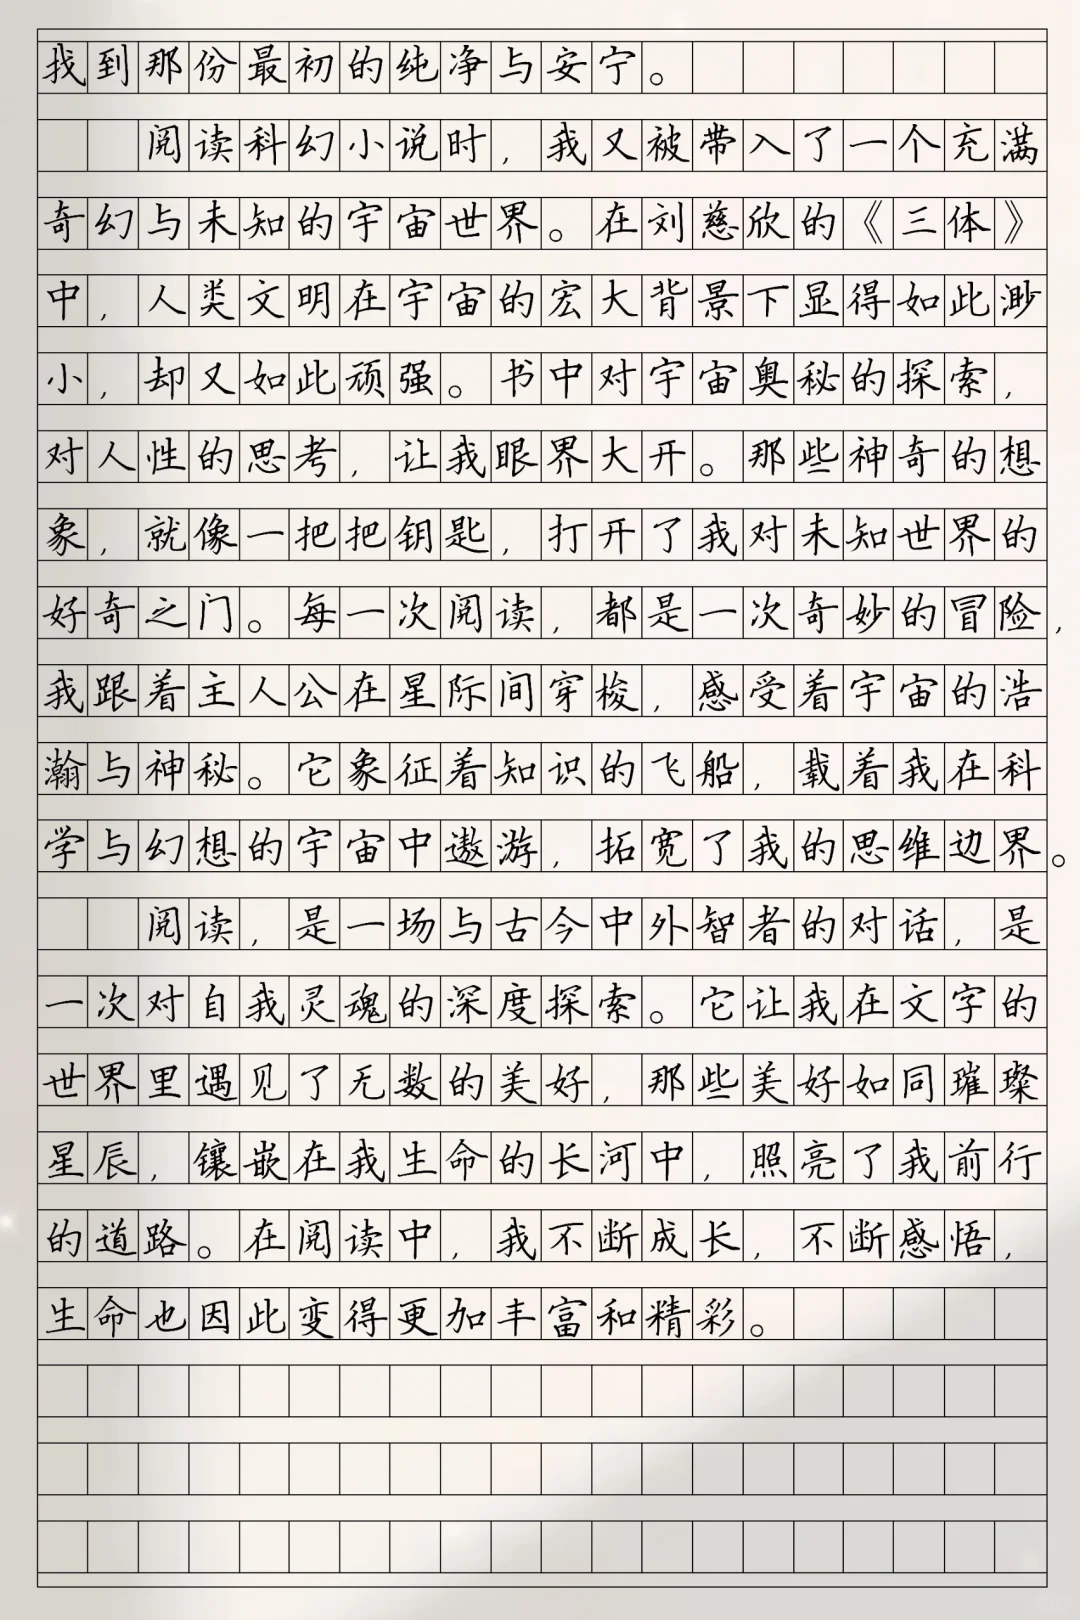 找到那份最初的纯净与安宁。
阅读科幻小说时，我又被带入了一个充满
奇幻与未知的宇宙世界。在刘慈欣的《三体》
中，人类文明在宇宙的宏大背景下显得如此渺
小，却又如此顽强。书中对宇宙奥秘的探索，
对人性的思考，让我眼界大开。那些神奇的想
象，就像一把把钥匙，打开了我对未知世界的
好奇之门。每一次阅读，都是一次奇妙的冒险，
我跟着主人公在星际间穿梭，感受着宇宙的浩
瀚与神秘。它象征着知识的飞船，载着我在科
学与幻想的宇宙中遨游，拓宽了我的思维边界。
阅读，是一场与古今中外智者的对话，是
一次对自我灵魂的深度探索。它让我在文字的
世界里遇见了无数的美好，那些美好如同璀璨
星辰，镶嵌在我生命的长河中，照亮了我前行
的道路。在阅读中，我不断成长，不断感悟，
生命也因此变得更加丰富和精彩。